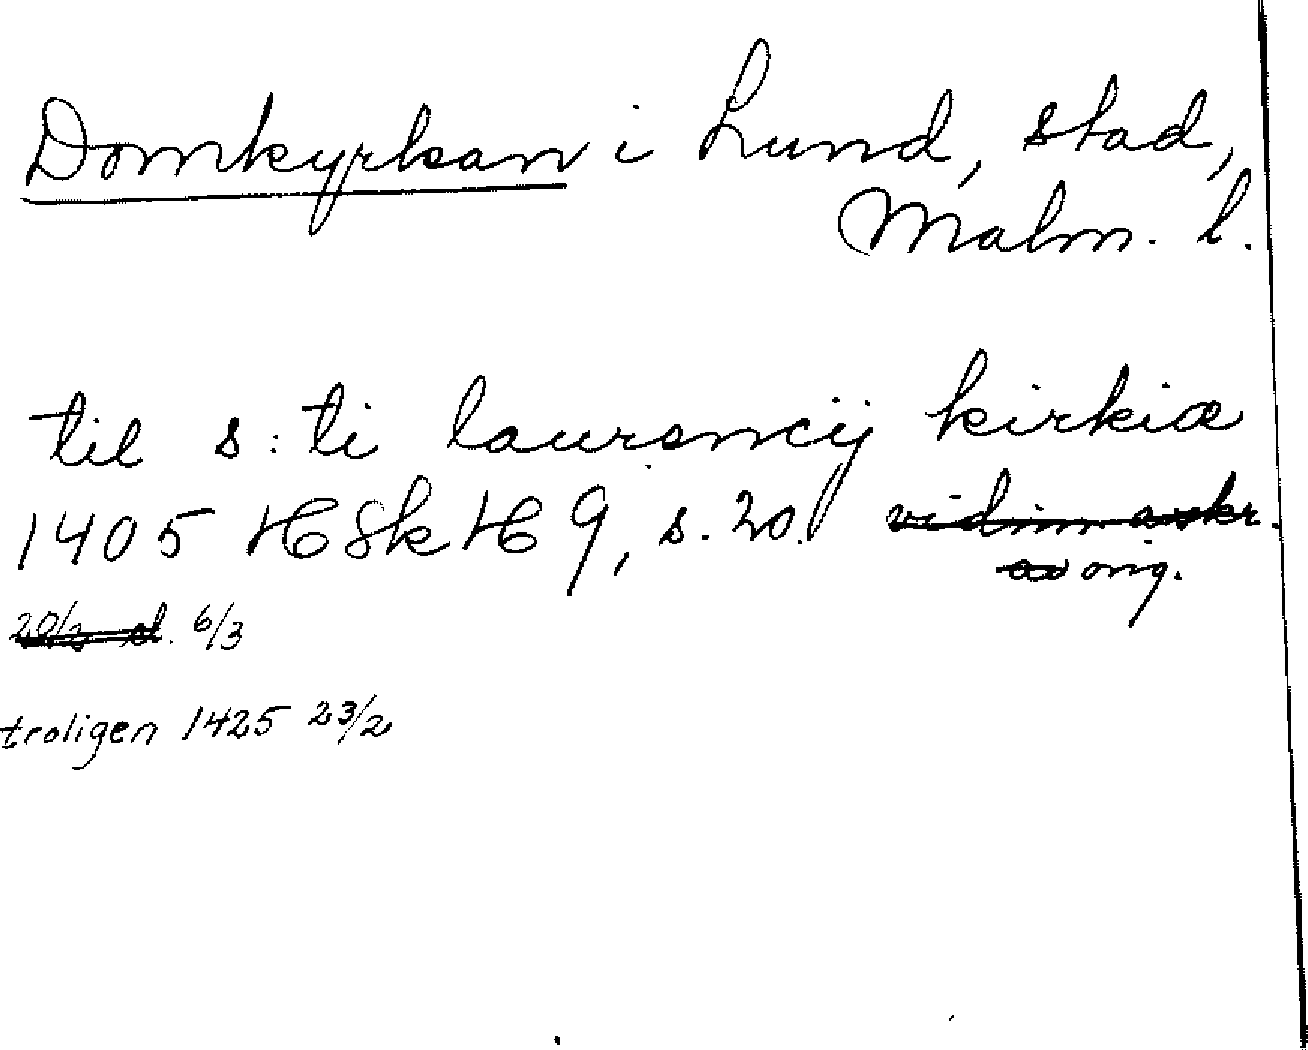 Domkyrkan i Lund, stad,
Malm. l.
til s:ti laurencij kirkiæ
1405 HSkH 9, s. 20. vidim. avskr.
av orig.
20/3 el. 6/3
troligen 1425 23/2